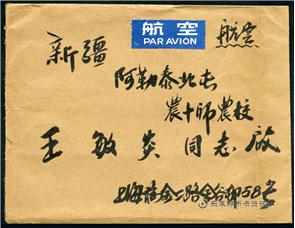 航空
PAR AVION
航空
新疆
阿勒泰北屯
農十师農校
王敏炎同志啟
上海瑞金二路
58号